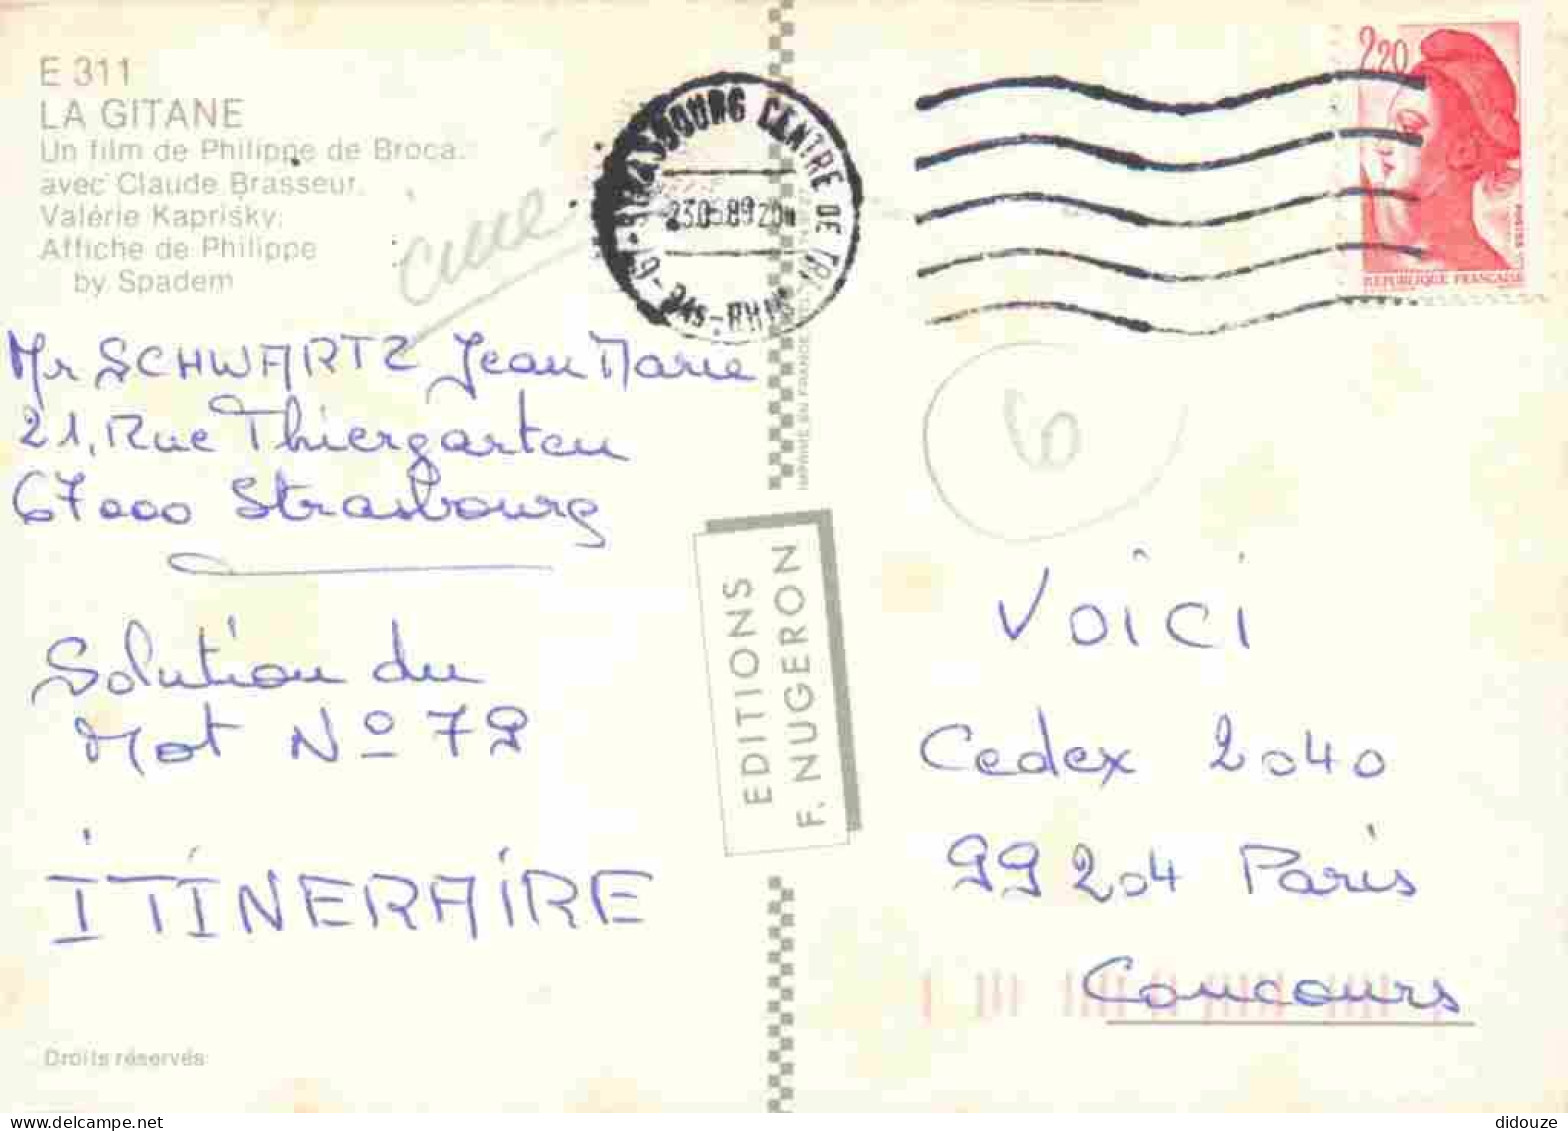 E 311
LA GITANE
Un film de Philippe de Broca.
avec Claude Brasseur.
Valérie Kaprisky.
Affiche de Philippe
by Spadem
ciné
Mr SCHWARTZ Jean Marie
21, Rue Thiergarten
67000 Strasbourg
Solution du
Mot No 79
ITINERAIRE
Droits réservés
67-STRASBOURG CENTRE DE TRI
BAS-RHIN
IMPRIMÉ EN FRANCE
EDITIONS
F. NUGERON
2,20
REPUBLIQUE FRANÇAISE
6
VOÎCI
Cedex 2040
99204 Paris
Concours
didouze